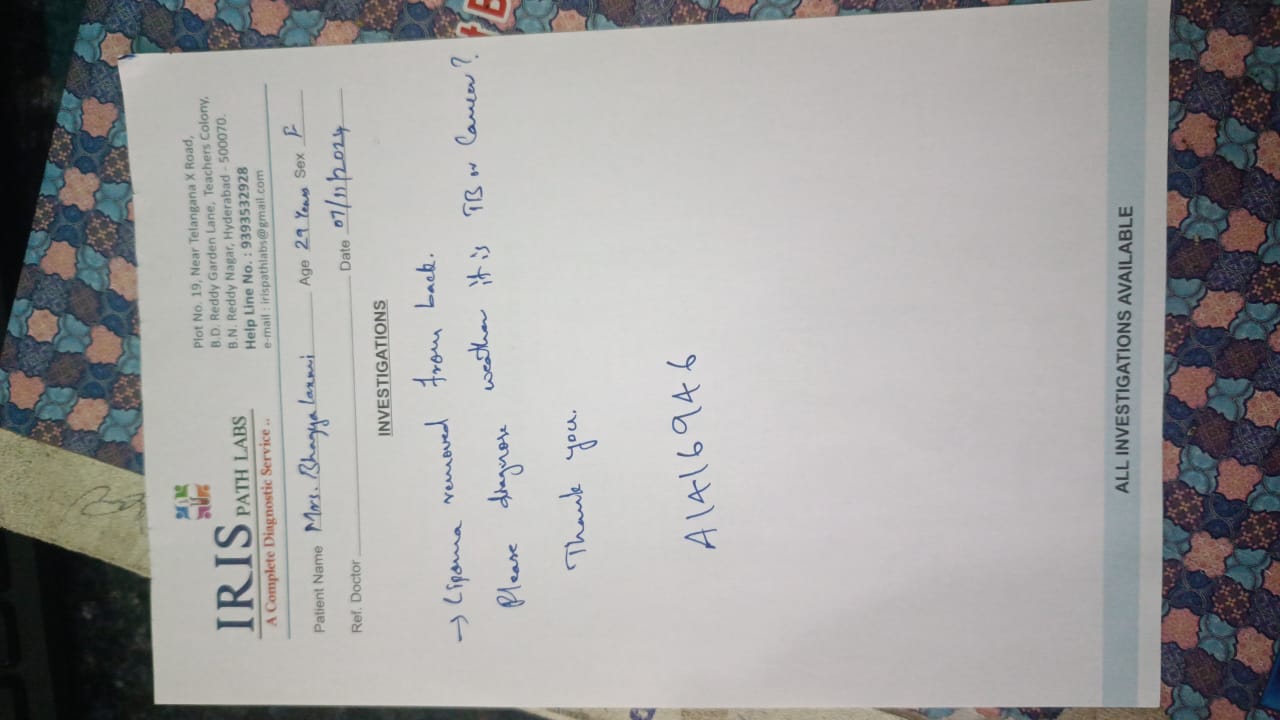 IRIS PATH LABS
A Complete Diagnostic Service ..
Plot No. 19, Near Telangana X Road,
B.D. Reddy Garden Lane, Teachers Colony,
B.N. Reddy Nagar, Hyderabad - 500070.
Help Line No. : 9393532928
e-mail : irispathlabs@gmail.com
Patient Name Mrs. Bhagya laxmi Age 29 Years Sex F
Ref. Doctor Date 07/11/2024
INVESTIGATIONS
→ Lipoma removed from back.
Please diagnose weather it is TB or Cancer?
Thank you.
A1416946
ALL INVESTIGATIONS AVAILABLE